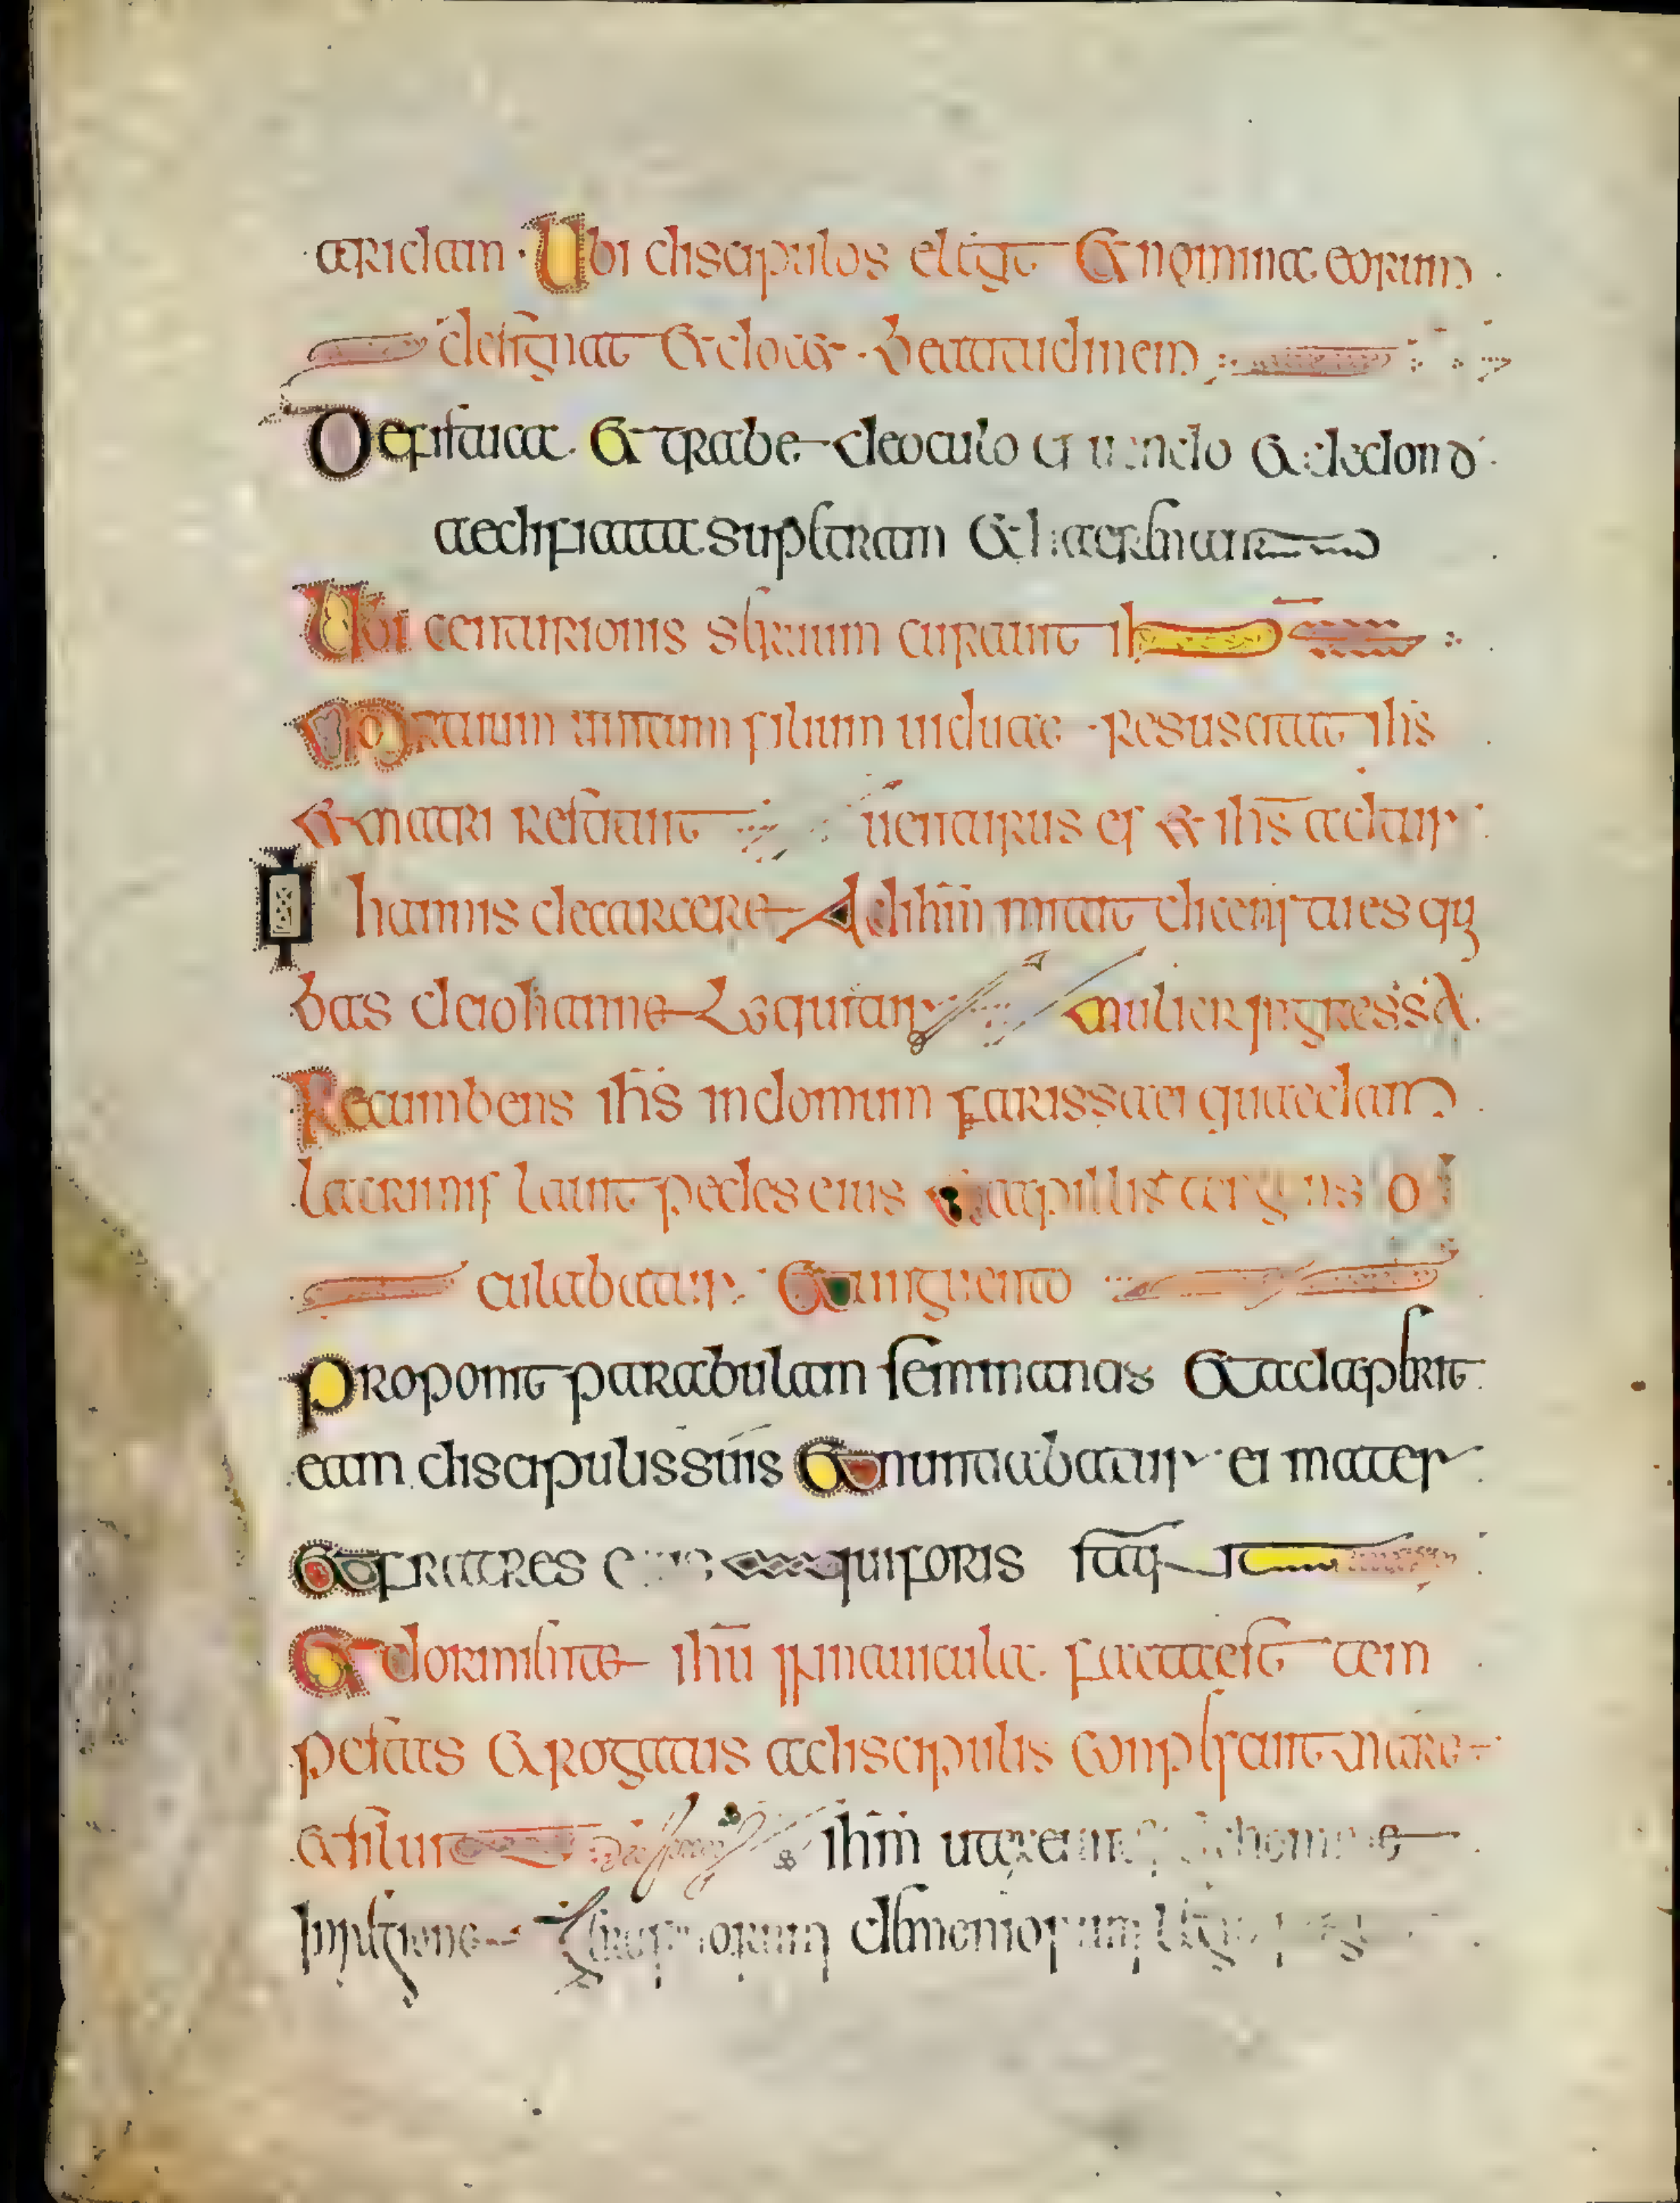 aridam · Ubi discipulos eligit & nomina eorum
designat & docet · beatitudinem
De fistuca & trabe de oculo & de domo
aedificata sup petram & harenam
Ubi centurionis seruum curauit ih
Mortuum unicum filium uiduae · resuscitat ihs
& matri restituit uenturus es & ihs ad tur
Iohannis de carcere Ad ihm mittit dicens tu es qui
bas de iohanne Loquitur mulier ingressa
Recumbens ihs in domum farissaei quaedam
lacrimis lauit pedes eius & capillis tergens os
culabatur & unguento
Proponit parabulam seminantis & adaperit
eam discipulis suis & nuntiabatur ei mater
& fratres eius qui foris
& dormiente ihu in nauicula facta est tem
pestas & rogatus a discipulis conpescuit mare
& siluit ihm homine
legione demeniorum